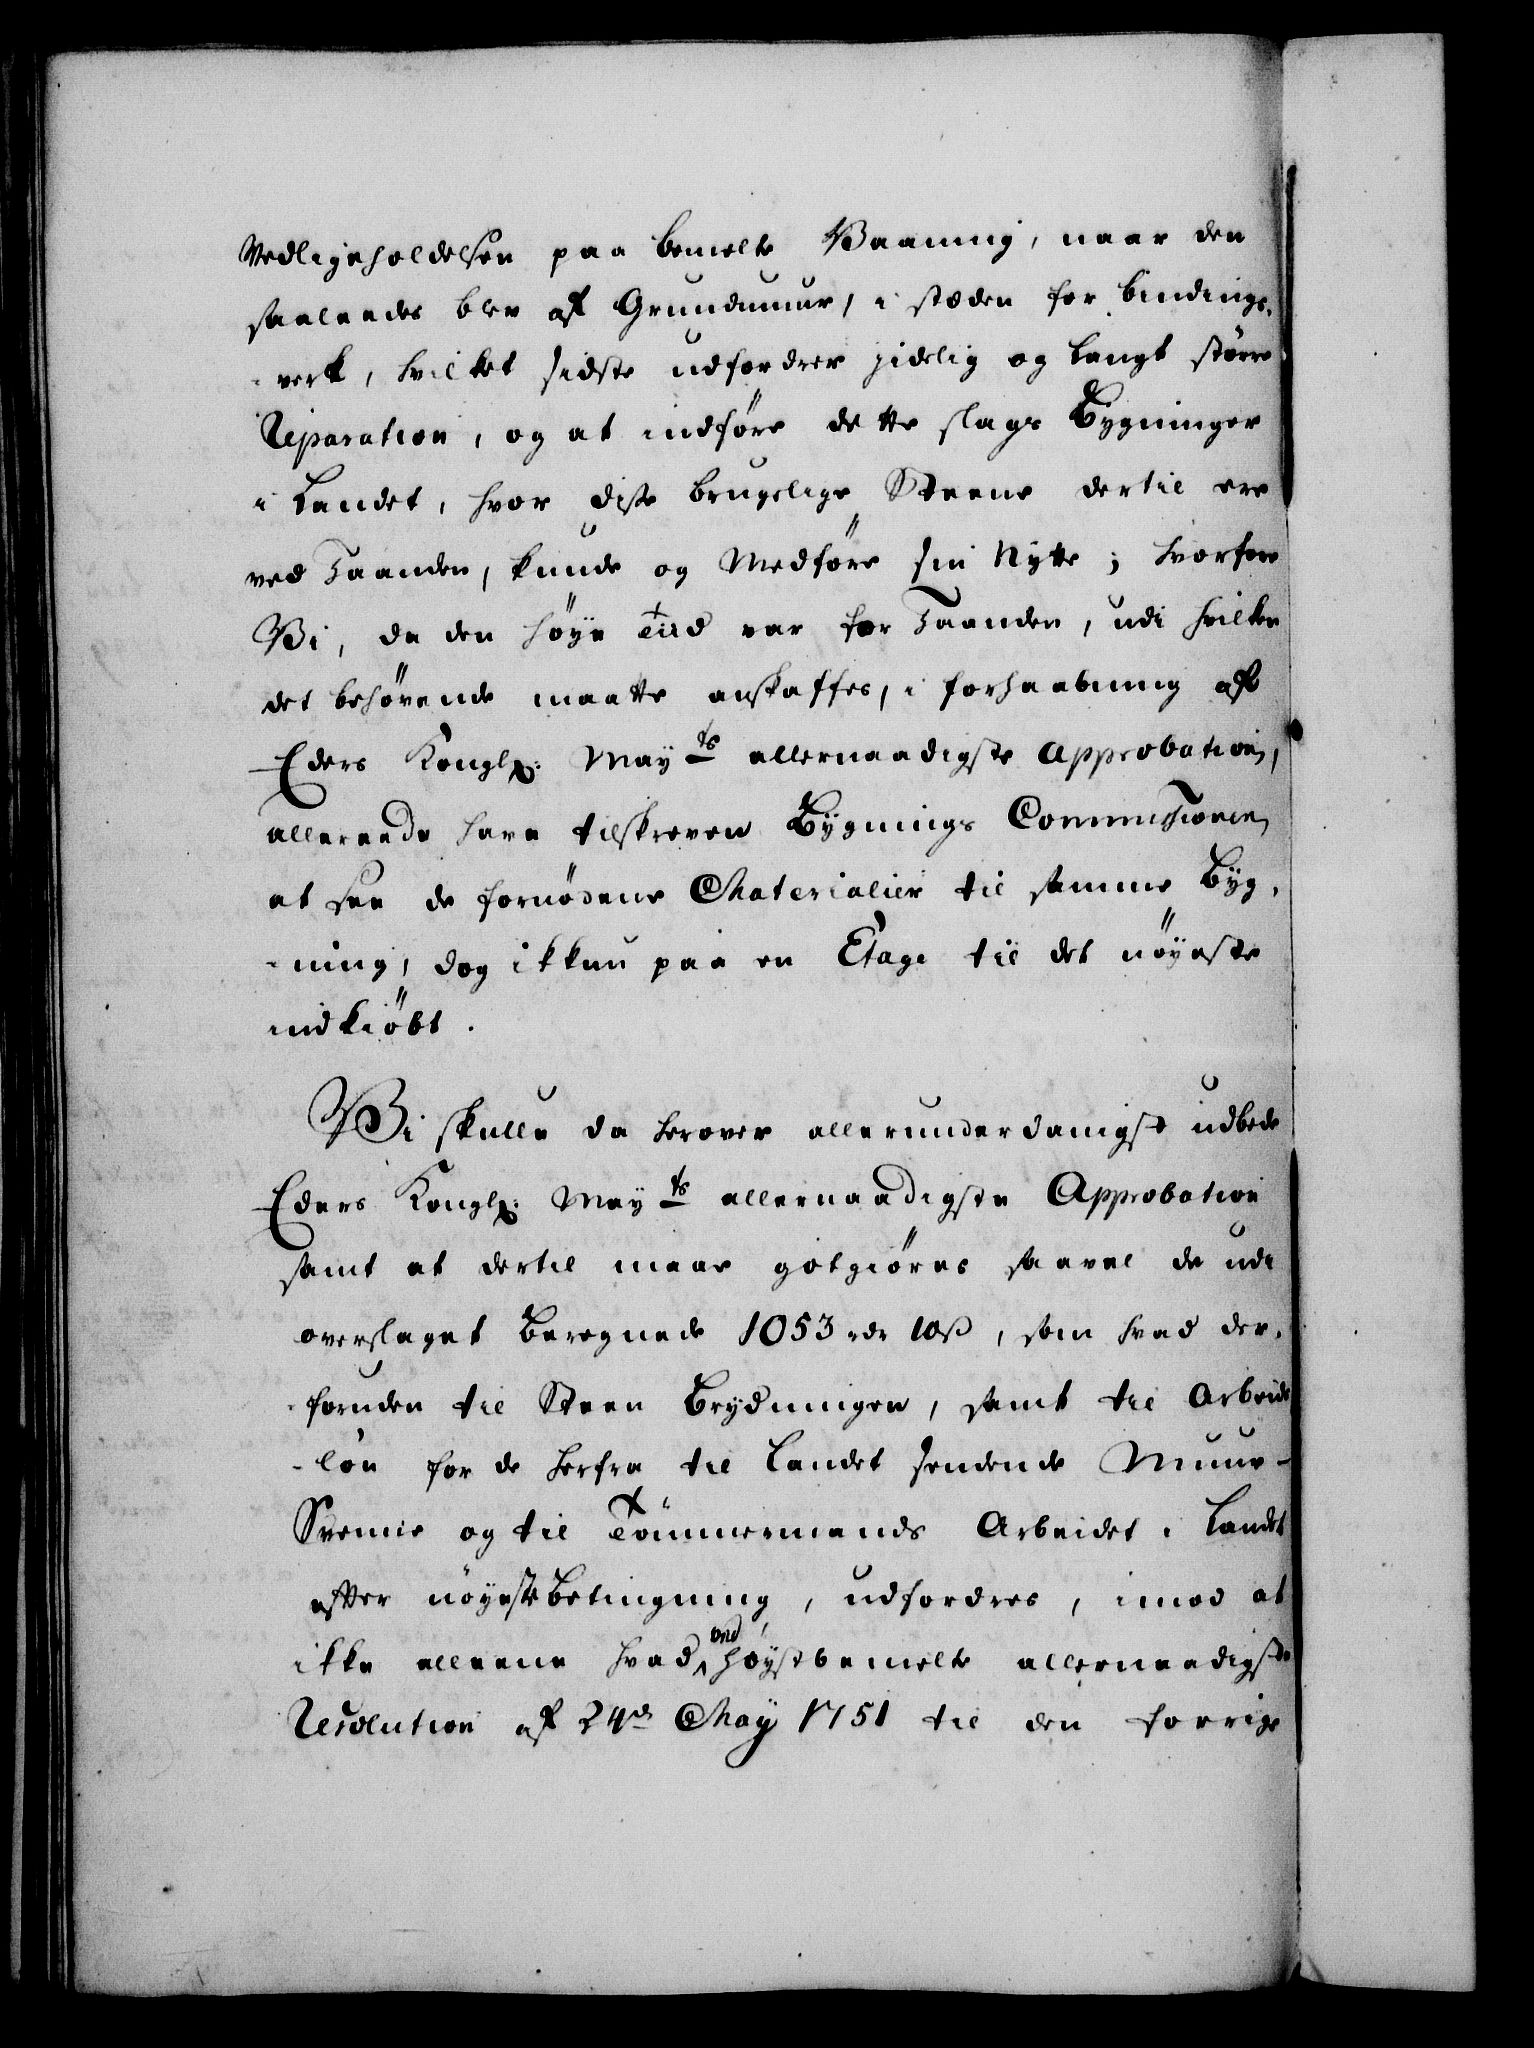 Vedligeholdelsen paa bemelte Vaaning, naar den
saaleedes blev af Grundmuur, i stæden for bindings-
-verk, hvilket sidste udfordrer jidelig og langt större
Reparation, og at indföre dette slags Bygninger
i Landet, hvor disse brugelige Steene dertil ere
ved Haanden, kunde og Medföre sin Nytte; hvorfore
Vi, da den höye Tiid var for Haanden, udi hvilken
det behövende maatte anskaffes, i forhaabning af
Eders Kongl: May ts allernaadigste Approbation,
allereede have tilskreven Bygnings Commissionen
at see de fornödene Materialier til samme Byg-
-ning, dog ikkun paa en Etage til det nöyeste
indkiöbt.
Vi skulle da herover allerunderdanigst udbede
Eders Kongl: May ts allernaadigste Approbation
samt at dertil maae gotgiöres saavel de udi
overslaget Beregnede 1053 rdr 10 ß, som hvad der-
-foruden til Steen Brydningen, samt til Arbeids
-lön for de herfra til Landet sendende Muur-
Svenne og til Tömmermands Arbeidet i Landet
efter nöyeste Betingning, udfordres, imod at
ikke alleene hvad ved höystbemelte allernaadigste
Resolution af 24de May 1751 til den forrige